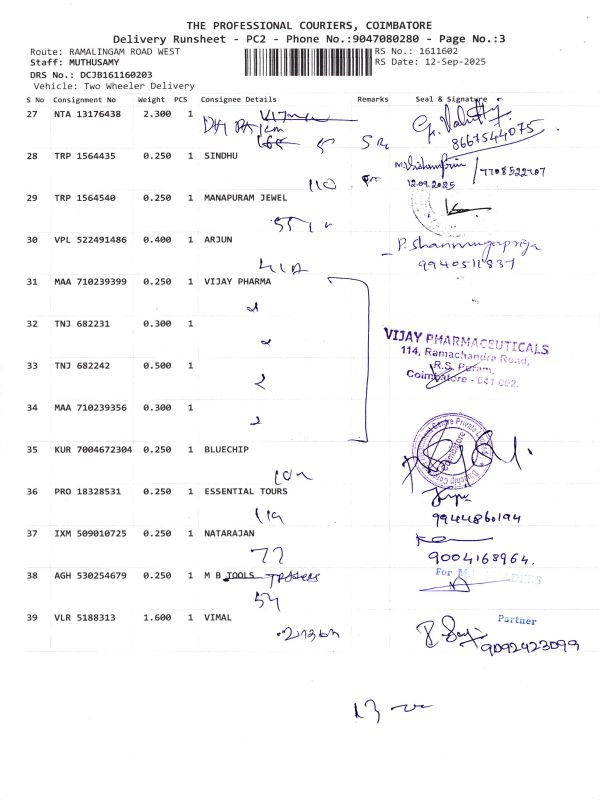 THE PROFESSIONAL COURIERS, COIMBATORE
Delivery Runsheet - PC2 - Phone No.:9047080280 - Page No.:3
Route: RAMALINGAM ROAD WEST RS No.: 1611602
Staff: MUTHUSAMY RS Date: 12-Sep-2025
DRS No.: DCJB161160203
Vehicle: Two Wheeler Delivery
S No Consignment No Weight PCS Consignee Details Remarks Seal & Signature
27 NTA 13176438 2.300 1
8667544075
28 TRP 1564435 0.250 1 SINDHU
110 12.09.2025 7708522707
29 TRP 1564540 0.250 1 MANAPURAM JEWEL
30 VPL 522491486 0.400 1 ARJUN
P. Shanmugapriya
9940511837
31 MAA 710239399 0.250 1 VIJAY PHARMA
32 TNJ 682231 0.300 1
VIJAY PHARMACEUTICALS
114, Ramachandra Road,
33 TNJ 682242 0.500 1
R.S. Puram,
Coimbatore - 641 002.
2
34 MAA 710239356 0.300 1
2
35 KUR 7004672304 0.250 1 BLUECHIP
36 PRO 18328531 0.250 1 ESSENTIAL TOURS
119 9944860194
37 IXM 509010725 0.250 1 NATARAJAN
77 9004168964.
38 AGH 530254679 0.250 1 M B TOOLS Traders
For M
54
39 VLR 5188313 1.600 1 VIMAL
Partner
9092423099
13